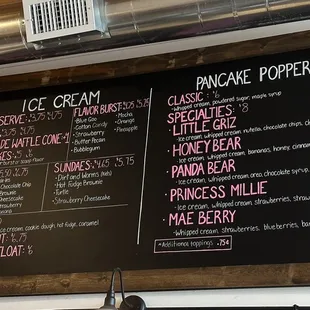 ICE CREAM
SERVE: $3.75 $4.75
$3.75 $4.75
WAFFLE CONE: +1
FLAVOR BURST: $4.25 $4.75
• Blue Goo
• Cotton Candy
• Strawberry
• Butter Pecan
• Bubblegum
• Mocha
• Orange
• Pineapple
SUNDAES: $4.65 $5.75
• Dirt and Worms (Nuts)
• Hot Fudge
Brownie
• Turtle
• Strawberry Cheesecake
Chocolate Chip
Brownie
Strawberry
Strawberry Cheesecake
ice cream, cookie dough, hot fudge, caramel
$6.75
FLOAT: $6
PANCAKE POPPER
CLASSIC : $6
• Whipped cream, powdered sugar, maple syrup
SPECIALTIES: $8
• LITTLE GRIZ
• Ice cream, whipped cream, nutella, chocolate chips, ch
• HONEY BEAR
• Ice cream, whipped cream, bananas, honey, cinnam
• PANDA BEAR
• Ice cream, whipped cream, oreo, chocolate syrup,
• PRINCESS MILLIE
• Ice cream, whipped cream, strawberries, straw
• MAE BERRY
• Whipped cream, strawberries, blueberries, ban
• Additional toppings .75¢